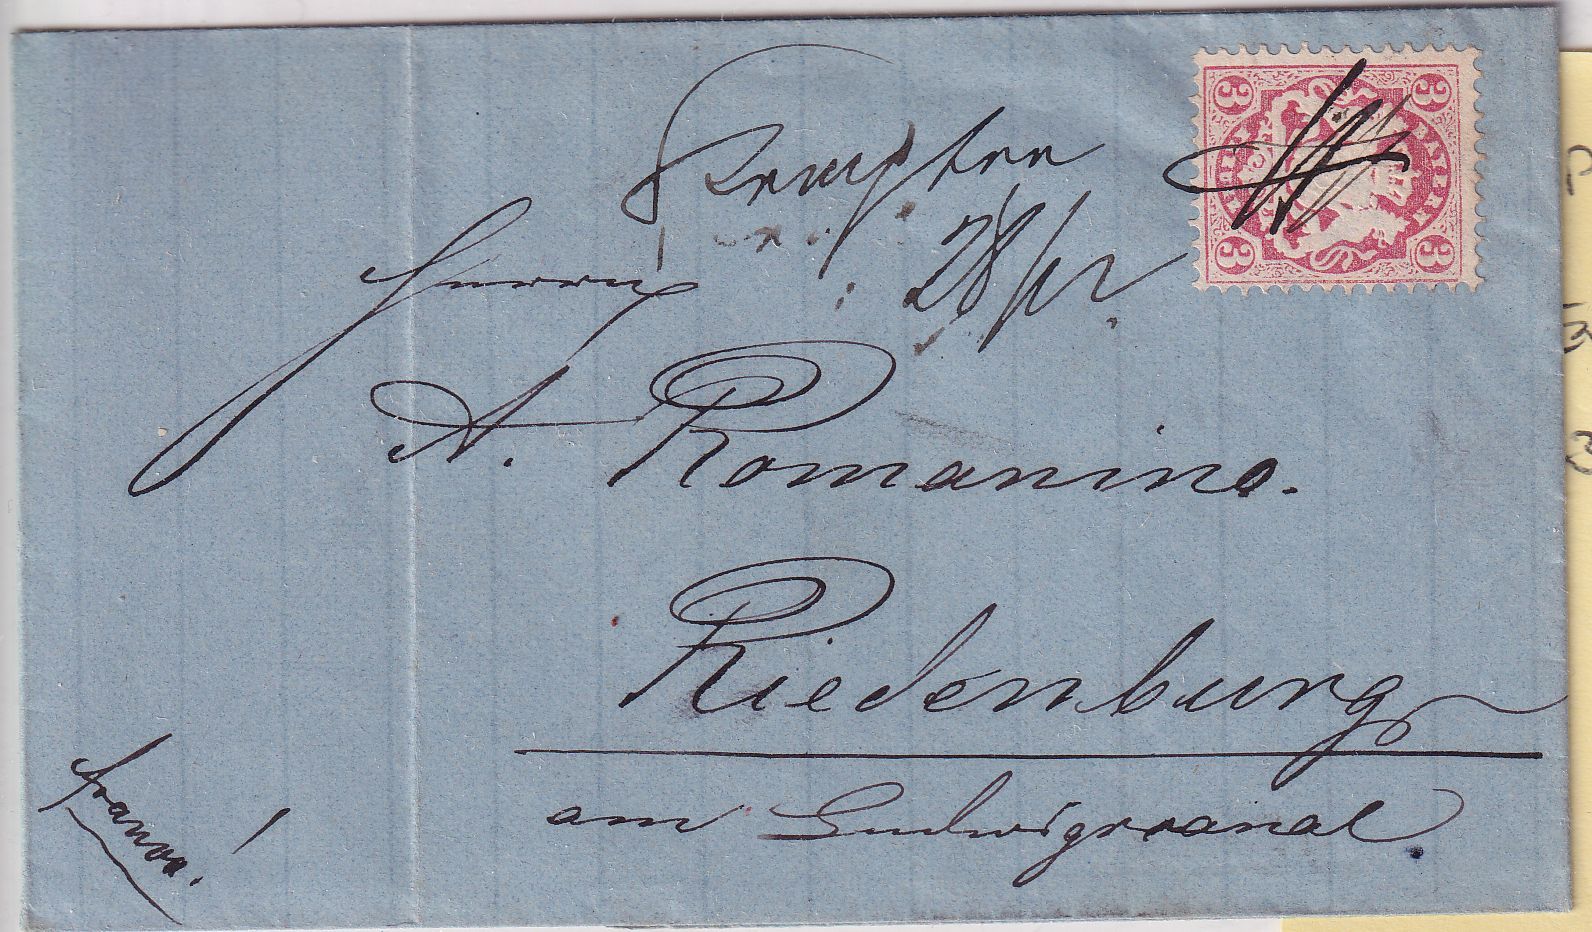 Kempten
28/12
3 3
BAYERN
3 3
Herrn
A. Romanino.
Riedenburg
am Ludwigscanal
franco!